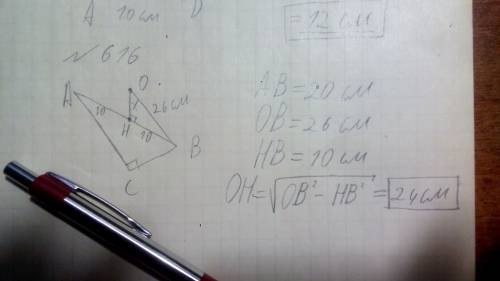 A 10см D
= 12 см
№ 616
A
O
x
26см
10
H
10
B
C
AB = 20 см
OB = 26 см
HB = 10 см
OH = √OB² - HB² = 24см